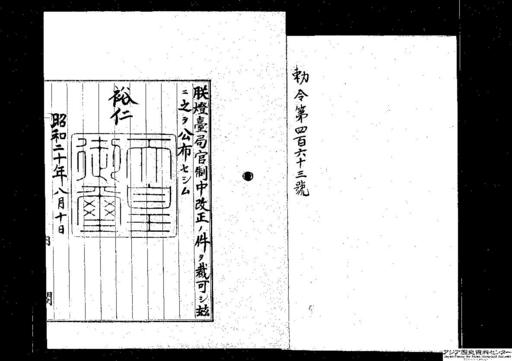 勅令第四百六十三號
朕燈臺局官制中改正ノ件ヲ裁可シ玆
ニ之ヲ公布セシム
裕仁
天皇
御璽
昭和二十年八月十日
内閣
アジア歴史資料センター